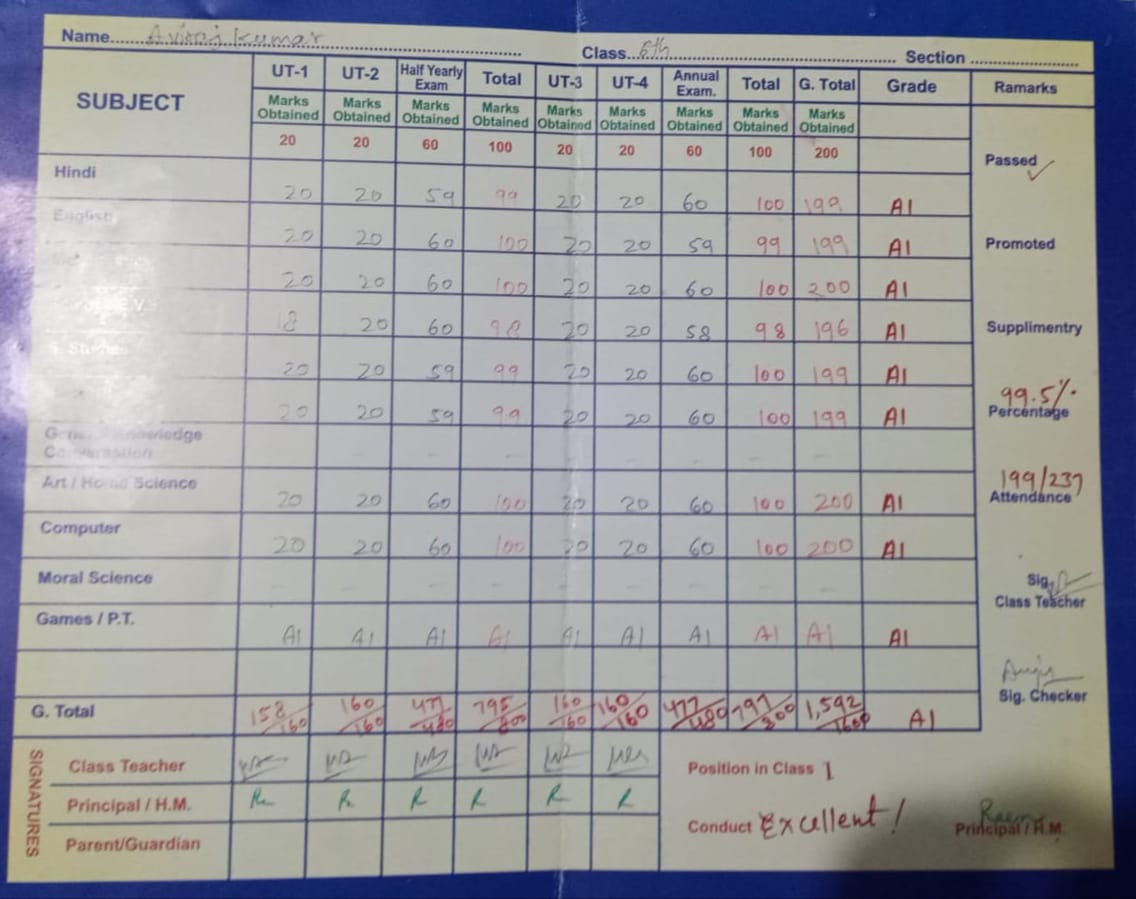 Name........ Kumar ........ Class...6th........ Section ........
SUBJECT UT-1 UT-2 Half Yearly Exam Total UT-3 UT-4 Annual Exam. Total G. Total Grade Ramarks
Marks Obtained Marks Obtained Marks Obtained Marks Obtained Marks Obtained Marks Obtained Marks Obtained Marks Obtained Marks Obtained
20 20 60 100 20 20 60 100 200
Passed ✓
Hindi 20 20 59 99 20 20 60 100 199 A1
English 20 20 60 100 20 20 59 99 199 A1
Promoted
20 20 60 100 20 20 60 100 200 A1
18 20 60 98 20 20 58 98 196 A1
Supplimentry
20 20 59 99 20 20 60 100 199 A1
99.5%
Percentage
20 20 59 99 20 20 60 100 199 A1
General Knowledge
Conversation - - - - - - - -
Art / Home Science 20 20 60 100 20 20 60 100 200 A1
199/237
Attendance
Computer 20 20 60 100 20 20 60 100 200 A1
Moral Science - - - - - - - -
Sig.
Class Teacher
Games / P.T. A1 A1 A1 A1 A1 A1 A1 A1 A1 A1
Sig. Checker
G. Total 158/160 160/160 477/480 795/800 160/160 160/160 477/480 797/800 1,592/1600 A1
SIGNATURES
Class Teacher
Position in Class 1
Principal / H.M.
Conduct Excellent!
Principal / H.M.
Parent/Guardian